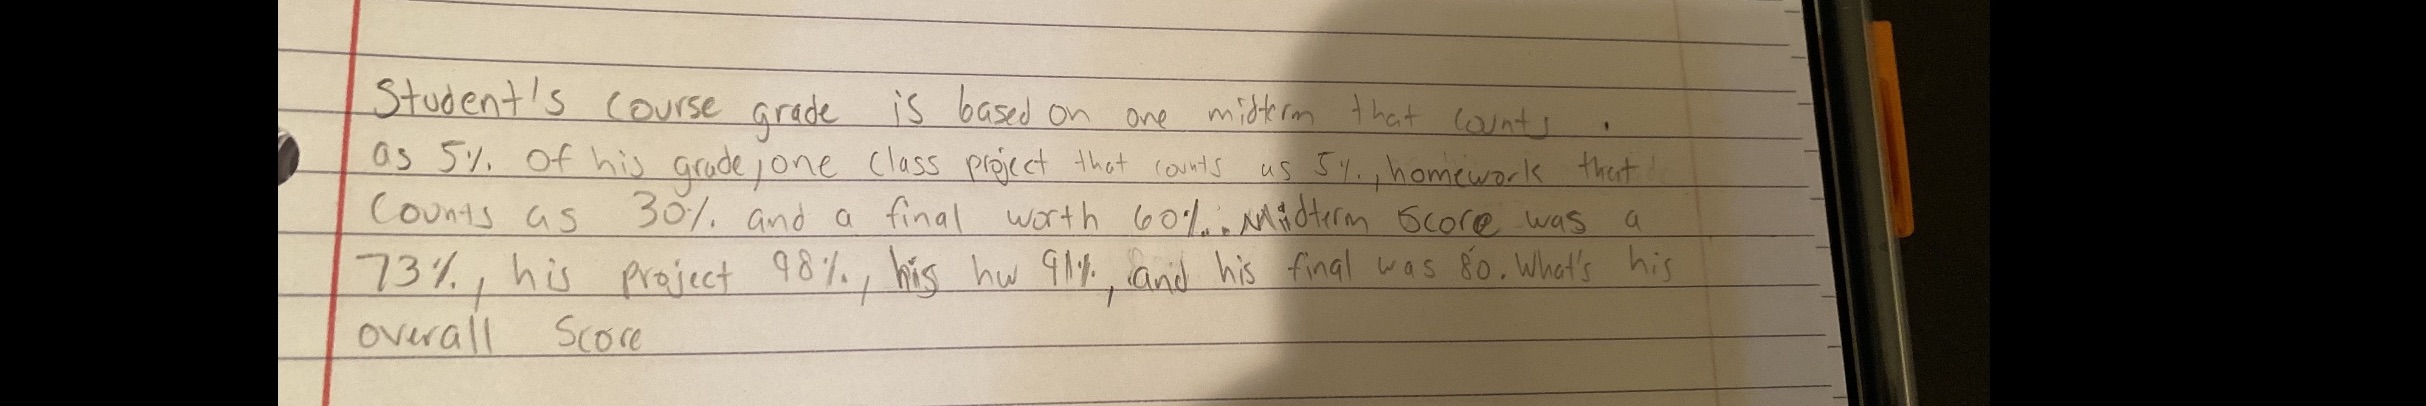 Student's course grade is based on one midterm that counts.
as 5% of his grade, one class project that counts as 5%, homework that
Counts as 30% and a final worth 60%. Midterm score was a
73%, his project 98%, his hw 91%, and his final was 80. What's his
overall Score